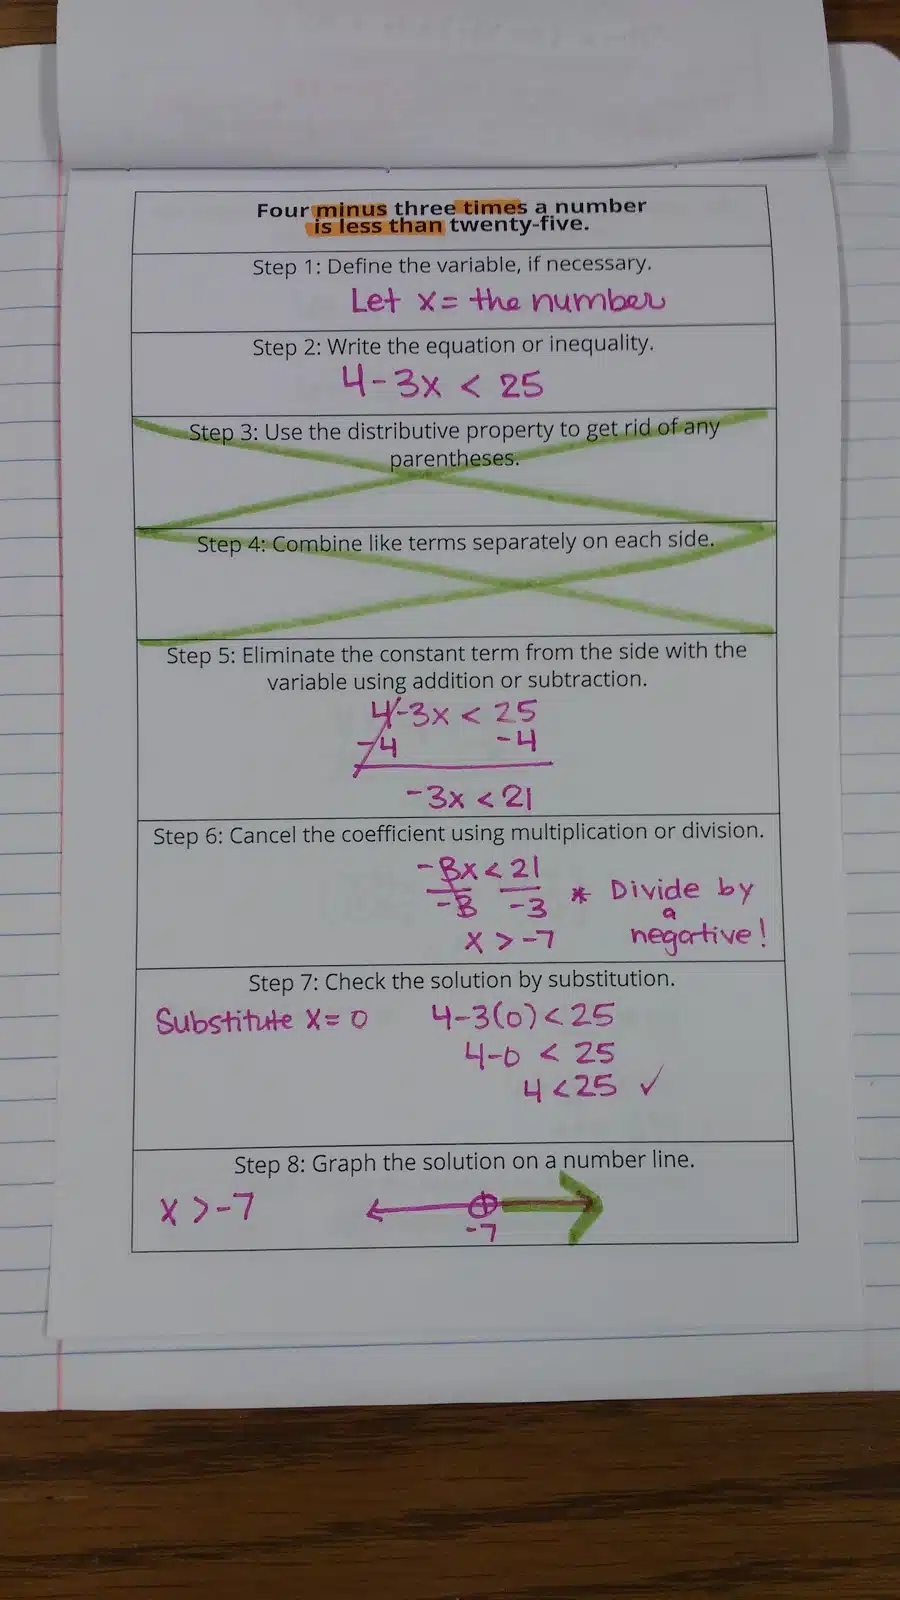 Four minus three times a number
is less than twenty-five.
Step 1: Define the variable, if necessary.
Let x = the number
Step 2: Write the equation or inequality.
4-3x < 25
Step 3: Use the distributive property to get rid of any
parentheses.
Step 4: Combine like terms separately on each side.
Step 5: Eliminate the constant term from the side with the
variable using addition or subtraction.
4-3x < 25
-4 -4
-3x < 21
Step 6: Cancel the coefficient using multiplication or division.
-3x < 21
-3 -3 * Divide by
a
x > -7 negative!
Step 7: Check the solution by substitution.
Substitute x = 0 4-3(0) < 25
4-0 < 25
4 < 25 ✓
Step 8: Graph the solution on a number line.
x > -7
-7